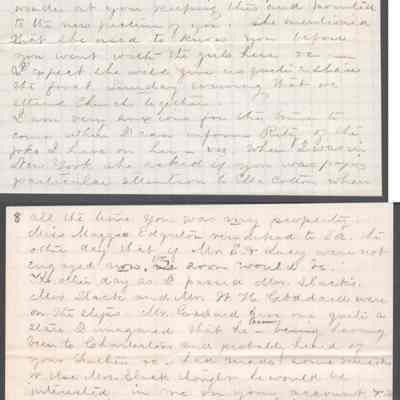 made at your keeping this and pointed
to the new picture of you. She mentioned
that she used to know you before
you went with the girls here &c —
I expect she will give us quite a share
the first Sunday evening that we
attend Church together.
I am very anxious for the time to
come when I can inform Rita of the
joke I have on her — viz. when I was in
New York she asked if you was paying
particular attention to Ella Cotton when
8 all the time you was my property.
Miss Maggie Edgerton remarked to Ed. the
other day that if Mr. E. W. Lucy were not
engaged now, they soon would be.
The other day as I passed Mrs. Slack's
Mrs. Slack and Mr. W. H. Goddard were
on the steps. Mr. Goddard gave me quite a
stare I imagined that he having
been to Charleston and probably heard of
your Father &c. had made some remarks
or else Mrs. Slack thought he would be
interested in me on your account &